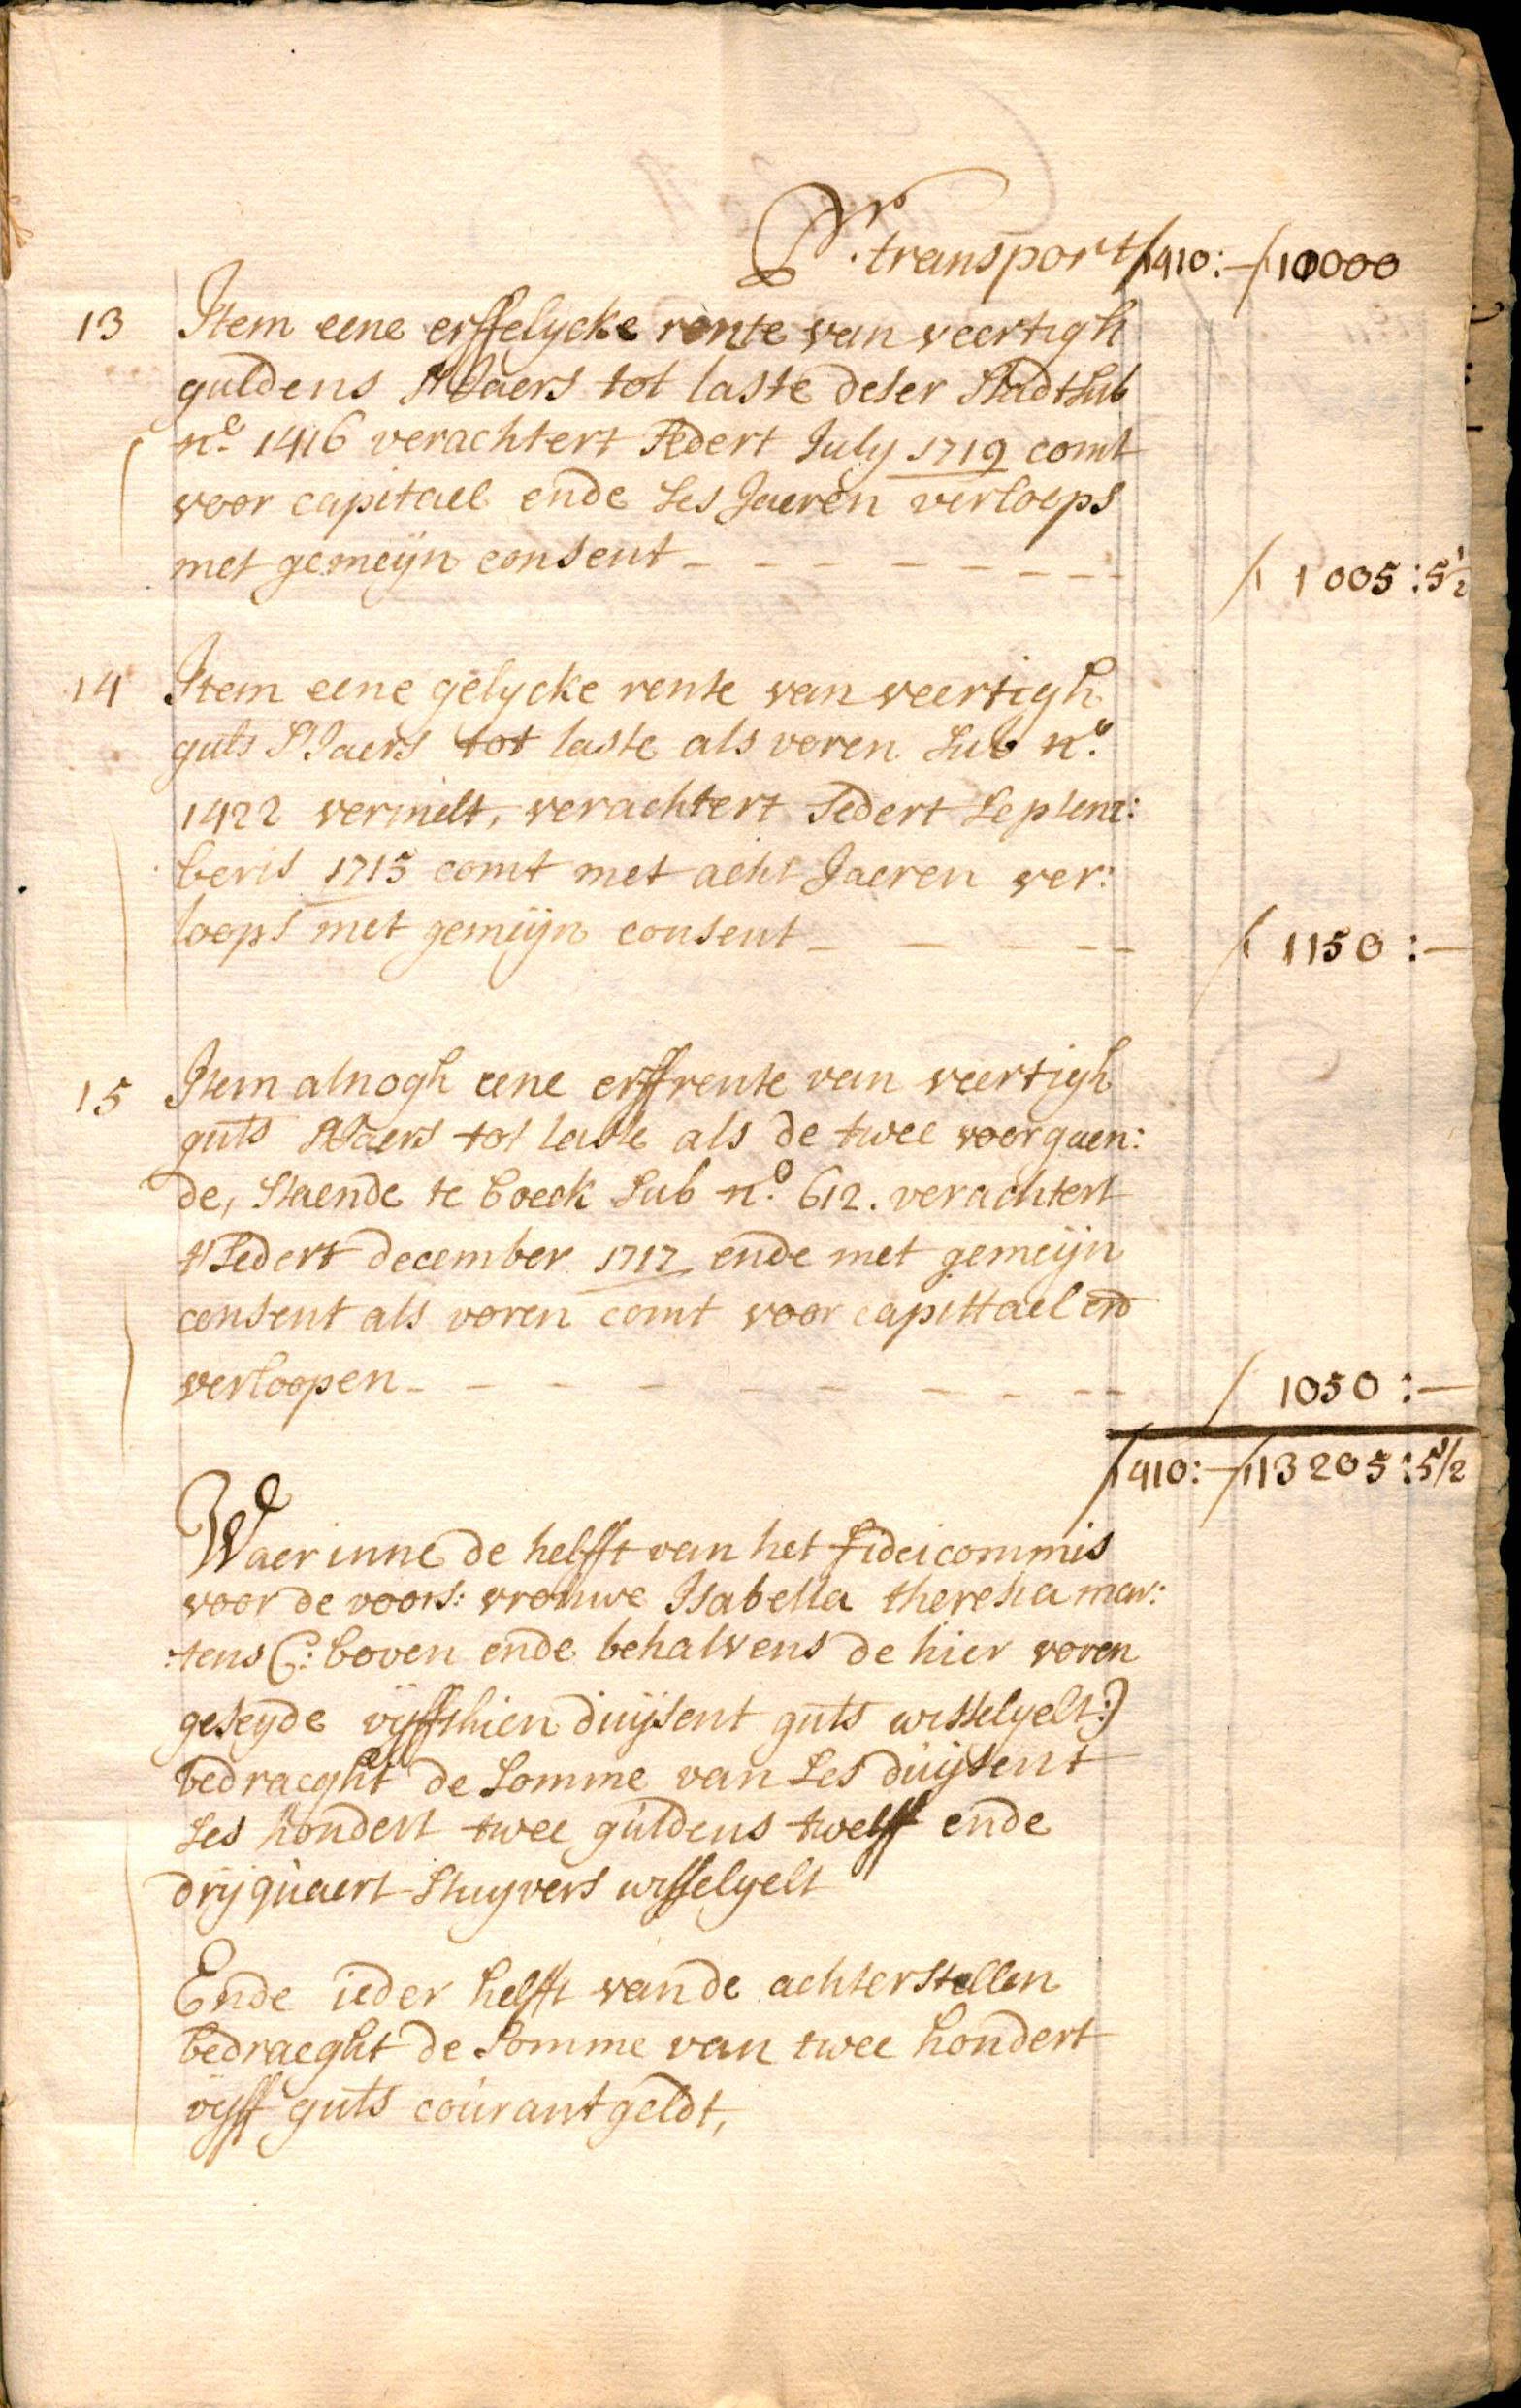 Pr. transport ƒ 410:— ƒ 10000
13 Item eene erffelycke rente van veertigh
guldens 'tJaers tot laste deser Stadt Sub
no. 1416 verachtert Sedert July 1719 comt
voor capitael ende Ses Jaeren verloops
met gemeijn consent — ƒ 1005:5½
14 Item eene gelycke rente van veertigh
guls 'SJaers tot laste als voren Sub no.
1422 vermelt, verachtert Sedert Septem:
beris 1715 comt met acht Jaeren ver:
loops met gemeijn consent — ƒ 1150:—
15 Item alnogh eene erffrente van veertigh
guls 'tJaers tot laste als de twee voorgaen:
de, Staende te boeck Sub no. 612. verachtert
'tSedert december 1717 ende met gemeijn
consent als voren comt voor capittael end
verloopen — ƒ 1050:—
ƒ 410:— ƒ 13205:5½
Waer inne de helfft van het fideicommis
voor de voors: vrouwe Isabella theresia mar:
:tens (: boven ende behalvens de hier voren
geseyde vijffthien duijsent guls wisselgelt:)
bedraeght de Somme van Ses duijsent
Ses hondert twee guldens twelff ende
drij quaert Stuyvers wisselgelt
Ende ieder helfft vande achterstellen
bedraeght de Somme van twee hondert
vijff guls courant geldt,